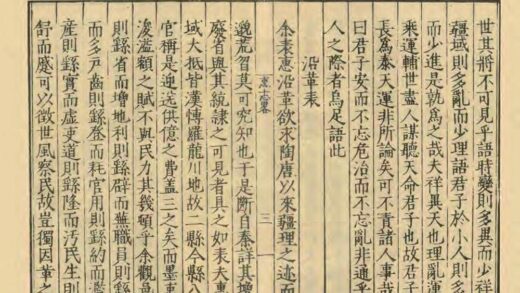 世其將不可見乎語時變則多異而少祥
疆域則多亂而少理語君子於小人則多
而少進是孰為之哉大祥異天也理亂運
乘運輔世盡人謀聽天命君子也故君
長為泰天運非所論矣可不責諸人事哉
曰君子安而不忘危治而不忘亂非通乎
人之際者烏足語此
沿革表
余表惠沿革欲求陶唐以來疆理之迹而
邈荒賀莫可究知也于是斷自秦詳其增
三
廢省與其統隸之可見者具之如表夫惠
域大抵皆漢博羅龍川地故二縣今縣八
官稱是迎送供億之費蓋三之矣而墨吏
浚濫額之賦不與民力其幾頓乎余觀
則繇省而增地利則繇辟而蕪職員則繇
而多戶齒則繇登而耗官用則繇約而濫
產則繇實而虛吏道則繇隆而汚民生則
舒而蹙可以徵世風察民故豈獨因革之